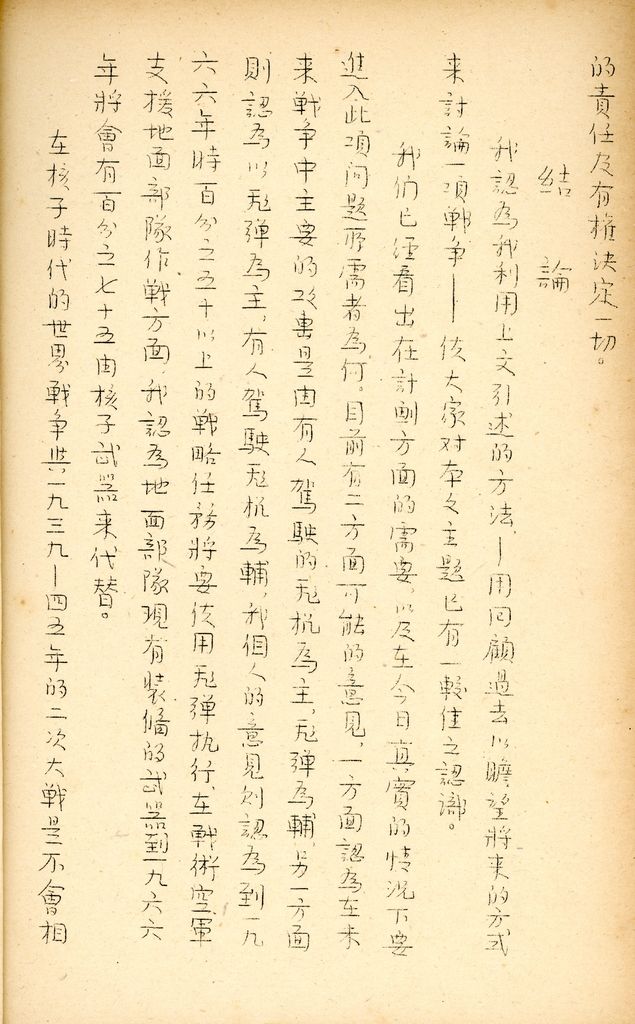 的責任及有權決定一切。
結論
我認為我利用上文引述的方法，—用回顧過去以瞻望將來的方式
来討論一項戰争——使大家对本文主題已有一較佳之認識。
我们已經看出在計劃方面的需要，以及在今日真實的情況下要
進入此項问題所需者為何。目前有二方面可能的意見，一方面認為在未
来戰争中主要的攻击是由有人駕駛的飛机為主，飛弹為輔，另一方面
則認為以飛弹為主，有人駕駛飛机為輔，我個人的意見则認為到一九
六六年時百分之五十以上的戰略任務將要使用飛弹执行，在戰術空軍
支援地面部隊作戰方面，我認為地面部隊現有装备的武器到一九六六
年將會有百分之七十五由核子武器来代替。
在核子時代的世界戰争與一九三九—四五年的二次大戰是不會相